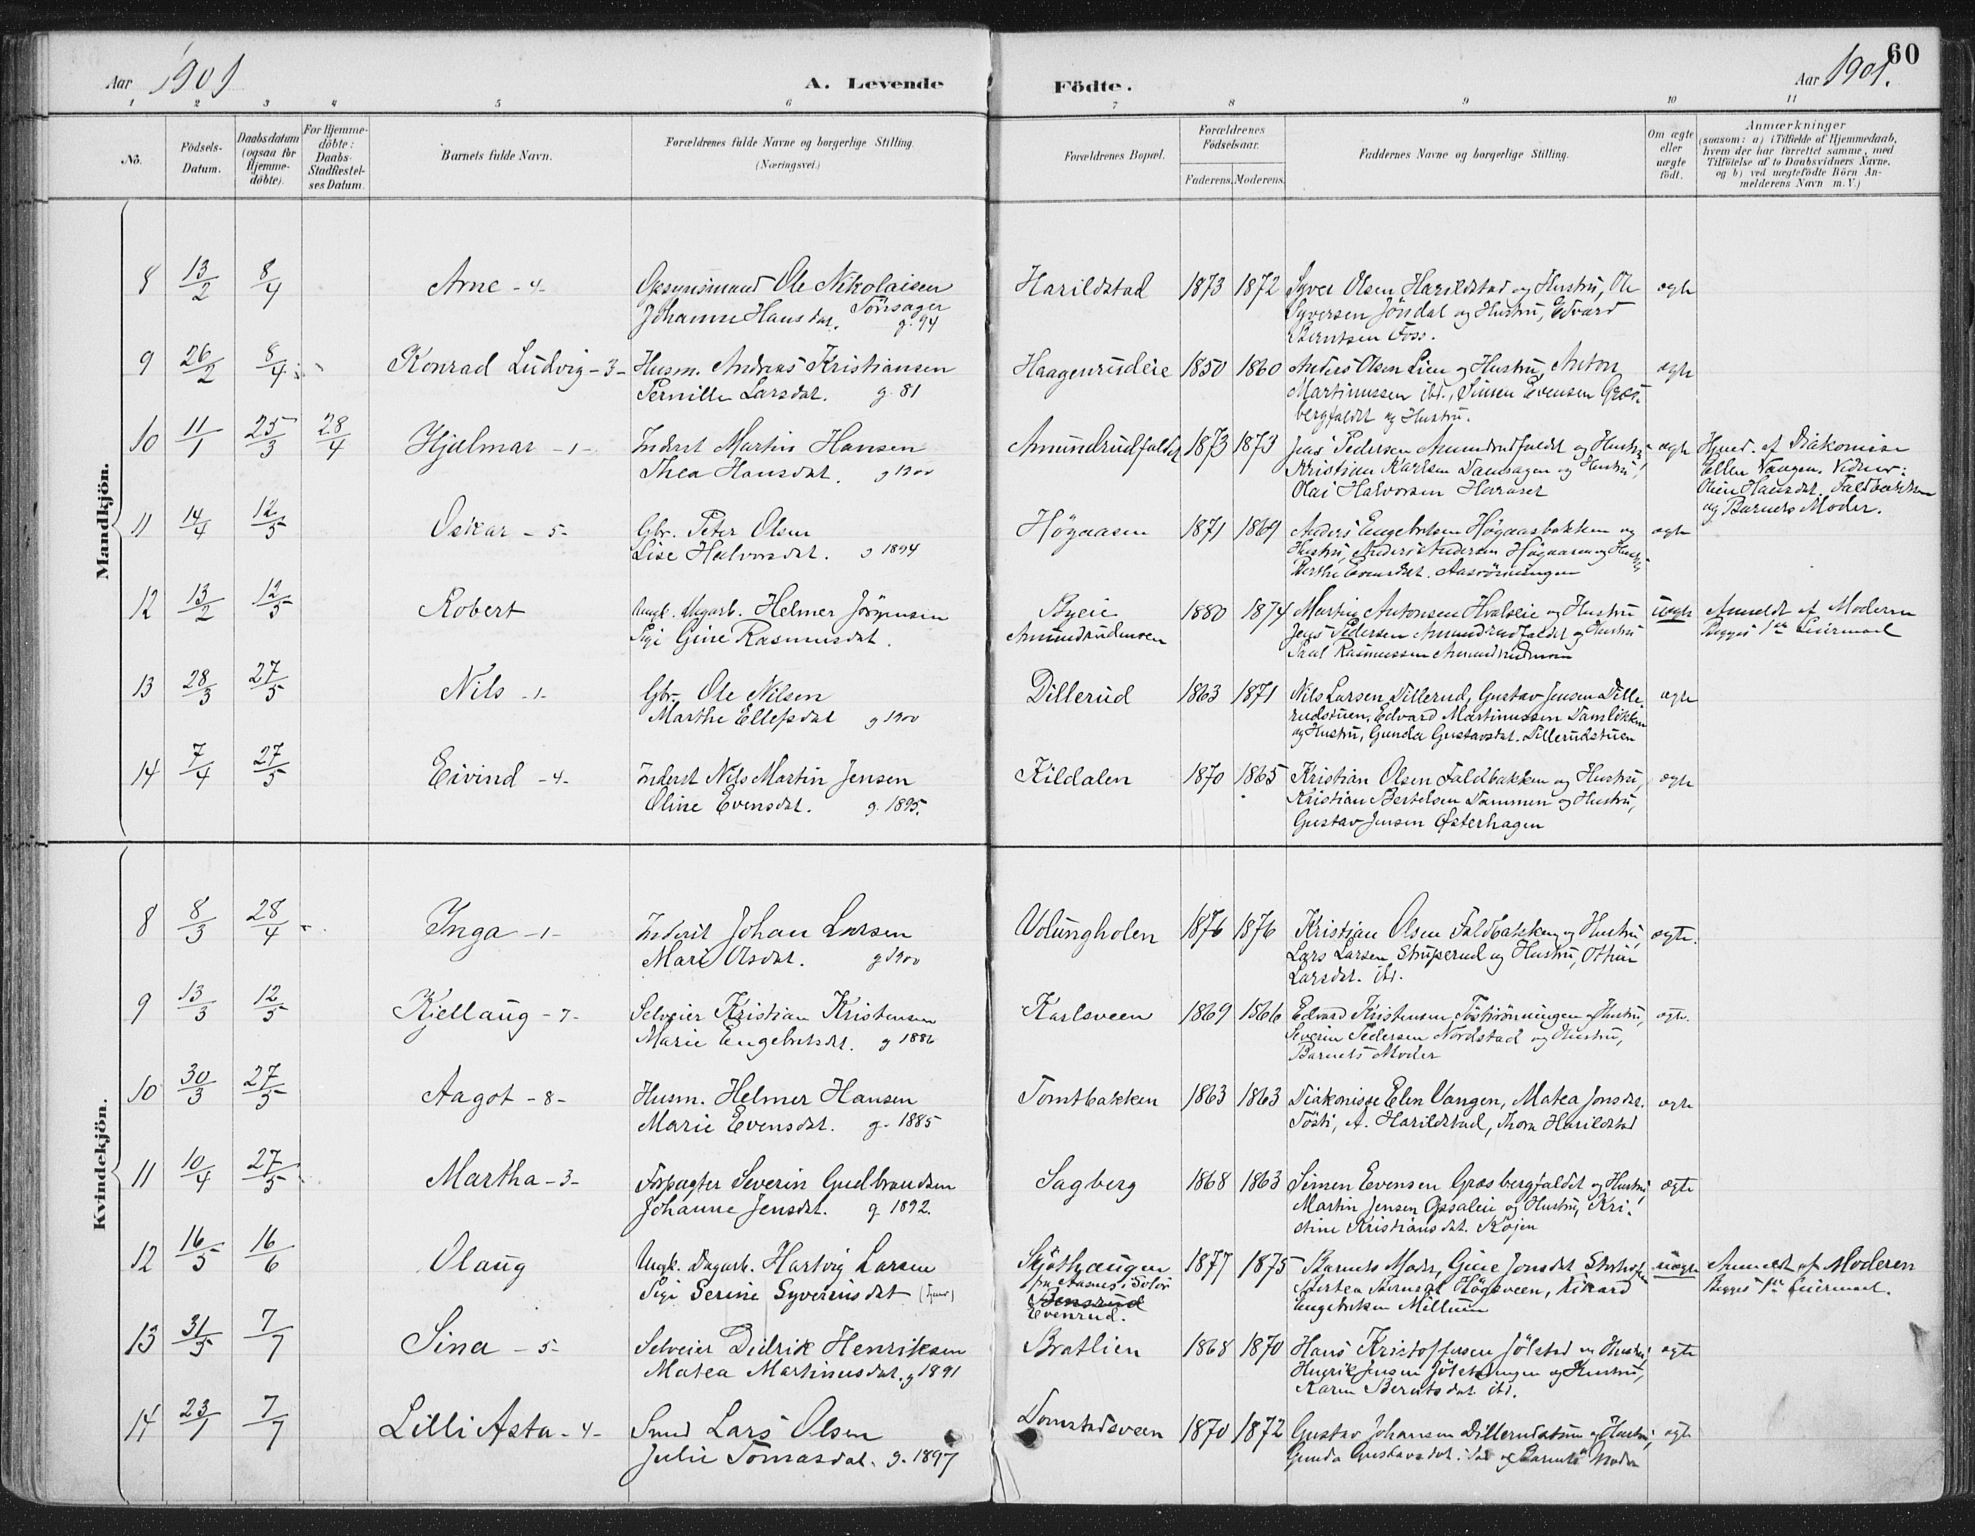 60
Aar 1901 A. Levende Födte. Aar 1901.
1 2 3 4 5 6 7 8 9 10 11
No.
Födsels-Datum.
Daabsdatum (ogsaa for Hjemme-döbte).
For Hjemme-döbte: Daabs-Stadfæstel-ses Datum.
Barnets fulde Navn.
Forældrenes fulde Navne og borgerlige Stilling. (Næringsvei.)
Forældrenes Bopæl.
Forældrenes Födselsaar. Faderens. Moderens.
Faddernes Navne og borgerlige Stilling.
Om ægte eller uægte födt.
Anmærkninger (saasom: a) i Tilfælde af Hjemmedaab, hvem der har forrettet samme, med Tilföielse af to Daabsvidners Navne, og b) ved uægtefödte Börn An-melderens Navn m. V.)
Mandkjön.
8 13/2 8/4 Arne - 4 - Opsynsmand Ole Nikolaisen Harildstad 1873 1872 Syver Olsen Harildstad og Hustru, Ole ægte
Johanne Hansdat. Tönsager g. 94 Syversen Jöndal og Hustru, Edvard
Berntsen Foss.
9 26/2 8/4 Konrad Ludvig - 3 - Husm. Andreas Kristiansen Haagenrudeie 1850 1860 Anders Olsen Lien og Hustru, Anton ægte
Pernille Larsdat. g. 81 Martinussen ibd., Simen Evensen Græs-
bergfaldet og Hustru.
10 11/1 25/3 28/4 Hjalmar - 1 - Inderst Martin Hansen Amundrudfaldet 1873 1873 Jens Pedersen Amundrudfaldet og Hustru, ægte Hjmd. af Diakonisse
Thea Hansdat. g 1900 Kristian Karlsen Damsagen og Hustru, Ellen Vangen. Vidner:
Olai Halvorsen Hovraset Oline Hansdat. Faldbakken
og Barnets Moder.
11 14/4 12/5 Oskar - 5 - Gbr. Peter Olsen Högaasen 1871 1869 Anders Engebretsen Högaasbakken og ægte
Lise Halvorsdat. g 1894 Hustru, Anders Andersen Högaasen og Hustru
Berthe Evensdat. Aasrönningen
12 13/2 12/5 Robert Ungk. Dagarb. Helmer Jörgensen Byeie 1880 1874 Martin Antonsen Hvalseie og Hustru uægte Anmeldt af Moderen
Pige Gine Rasmusdat. Amundrudmoen Jens Pedersen Amundrudfaldet og Hustru Begges 1ste Leiermaal
Paul Rasmussen Amundrudmoen
13 28/3 27/5 Nils - 1 - Gbr. Ole Nilsen Dillerud 1863 1871 Nils Larsen Dillerud, Gustav Jensen Dille- ægte
Marthe Ellefsdat g 1900 rudstuen, Edvard Martinussen Damlökken
og Hustru, Gunda Gustavsdat. Dillerudstuen
14 7/4 27/5 Eivind - 4 - Inderst Nils Martin Jensen Kildalen 1870 1865 Kristian Olsen Faldbakken og Hustru, ægte
Oline Evensdat. g. 1895. Kristian Bertelsen Dammen og Hustru,
Gustav Jensen Østerhagen
Kvindekjön.
8 8/3 28/4 Inga - 1 - Inderst Johan Larsen Volungholen 1876 1876 Kristian Olsen Faldbakken og Hustru, ægte.
Mari Olsdat. g 1900 Lars Larsen Struperud og Hustru, Othine
Larsdat. ibd.
9 13/3 12/5 Kjellaug - 7 - Selveier Kristian Kristensen Karlsveen 1869 1866 Edvard Kristensen Töstirönningen og Hustru, ægte.
Marie Engebretsdat. g 1886 Severin Pedersen Nordstad og Hustru,
Barnets Moder
10 30/3 27/5 Aagot - 8 - Husm. Helmer Hansen Tomtbakken 1863 1863 Diakonisse Elen Vangen, Matea Jonsdat. ægte
Marie Evensdat. g. 1885 Tösti, A. Harildstad, Thora Harildstad
11 10/4 27/5 Martha - 3 - Forpagter Severin Gudbrandsen Sagberg 1868 1863 Simen Evensen Græsbergfaldet og Hustru, ægte
Johanne Jensdat. g. 1892. Martin Jensen Opsaleie og Hustru, Kri-
stine Kristiansdat. Köjen
12 16/5 16/6 Olaug Ungk. Dagarb. Hartvig Larsen Skjöthaugen 1877 1875 Barnets Moder, Gine Jonsdat uægte Anmeldt af Moderen
Pige Serine Syverinsdat fra Aasnes, Solör Högsveen, Rikard Begges 1ste Leiermaal.
Evenrud. Engebretsen Millum
13 31/5 7/7 Sina - 5 - Selveier Didrik Henriksen Bratlien 1868 1870 Hans Kristoffersen Jölstad og Hustru, ægte
Matea Martinusdat. g 1891 Henrik Jensen og Hustru,
Karen Berntsdat ibd.
14 23/1 7/7 Lilli Asta - 4 - Smed Lars Olsen Domstadsveen 1870 1872 Gustav Johansen Dillerudstuen og Hustru, ægte
Julie Tomasdat. g. 1897 Gunda Gustavsdat. ibd og Barnets Moder